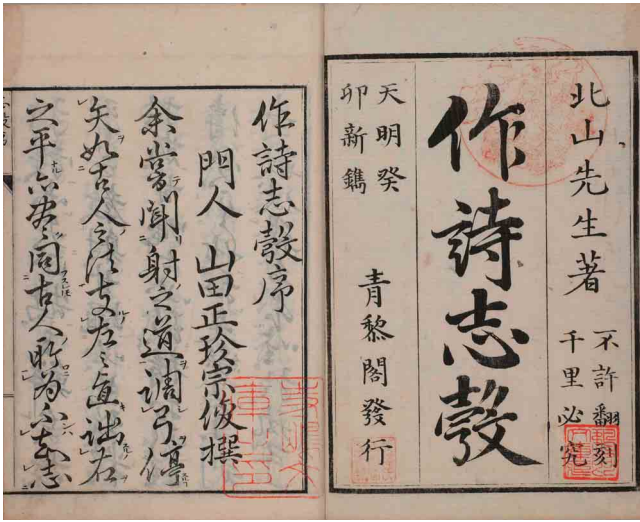 北山先生著
不許翻刻
千里必究
作詩志彀
天明癸
卯新鐫
青黎閣發行
作詩志彀序
門人 山田正珍宗俊撰
余嘗聞射之道調弓停
矢如古人之法支左之直詘右
之平亦如之同古人所為